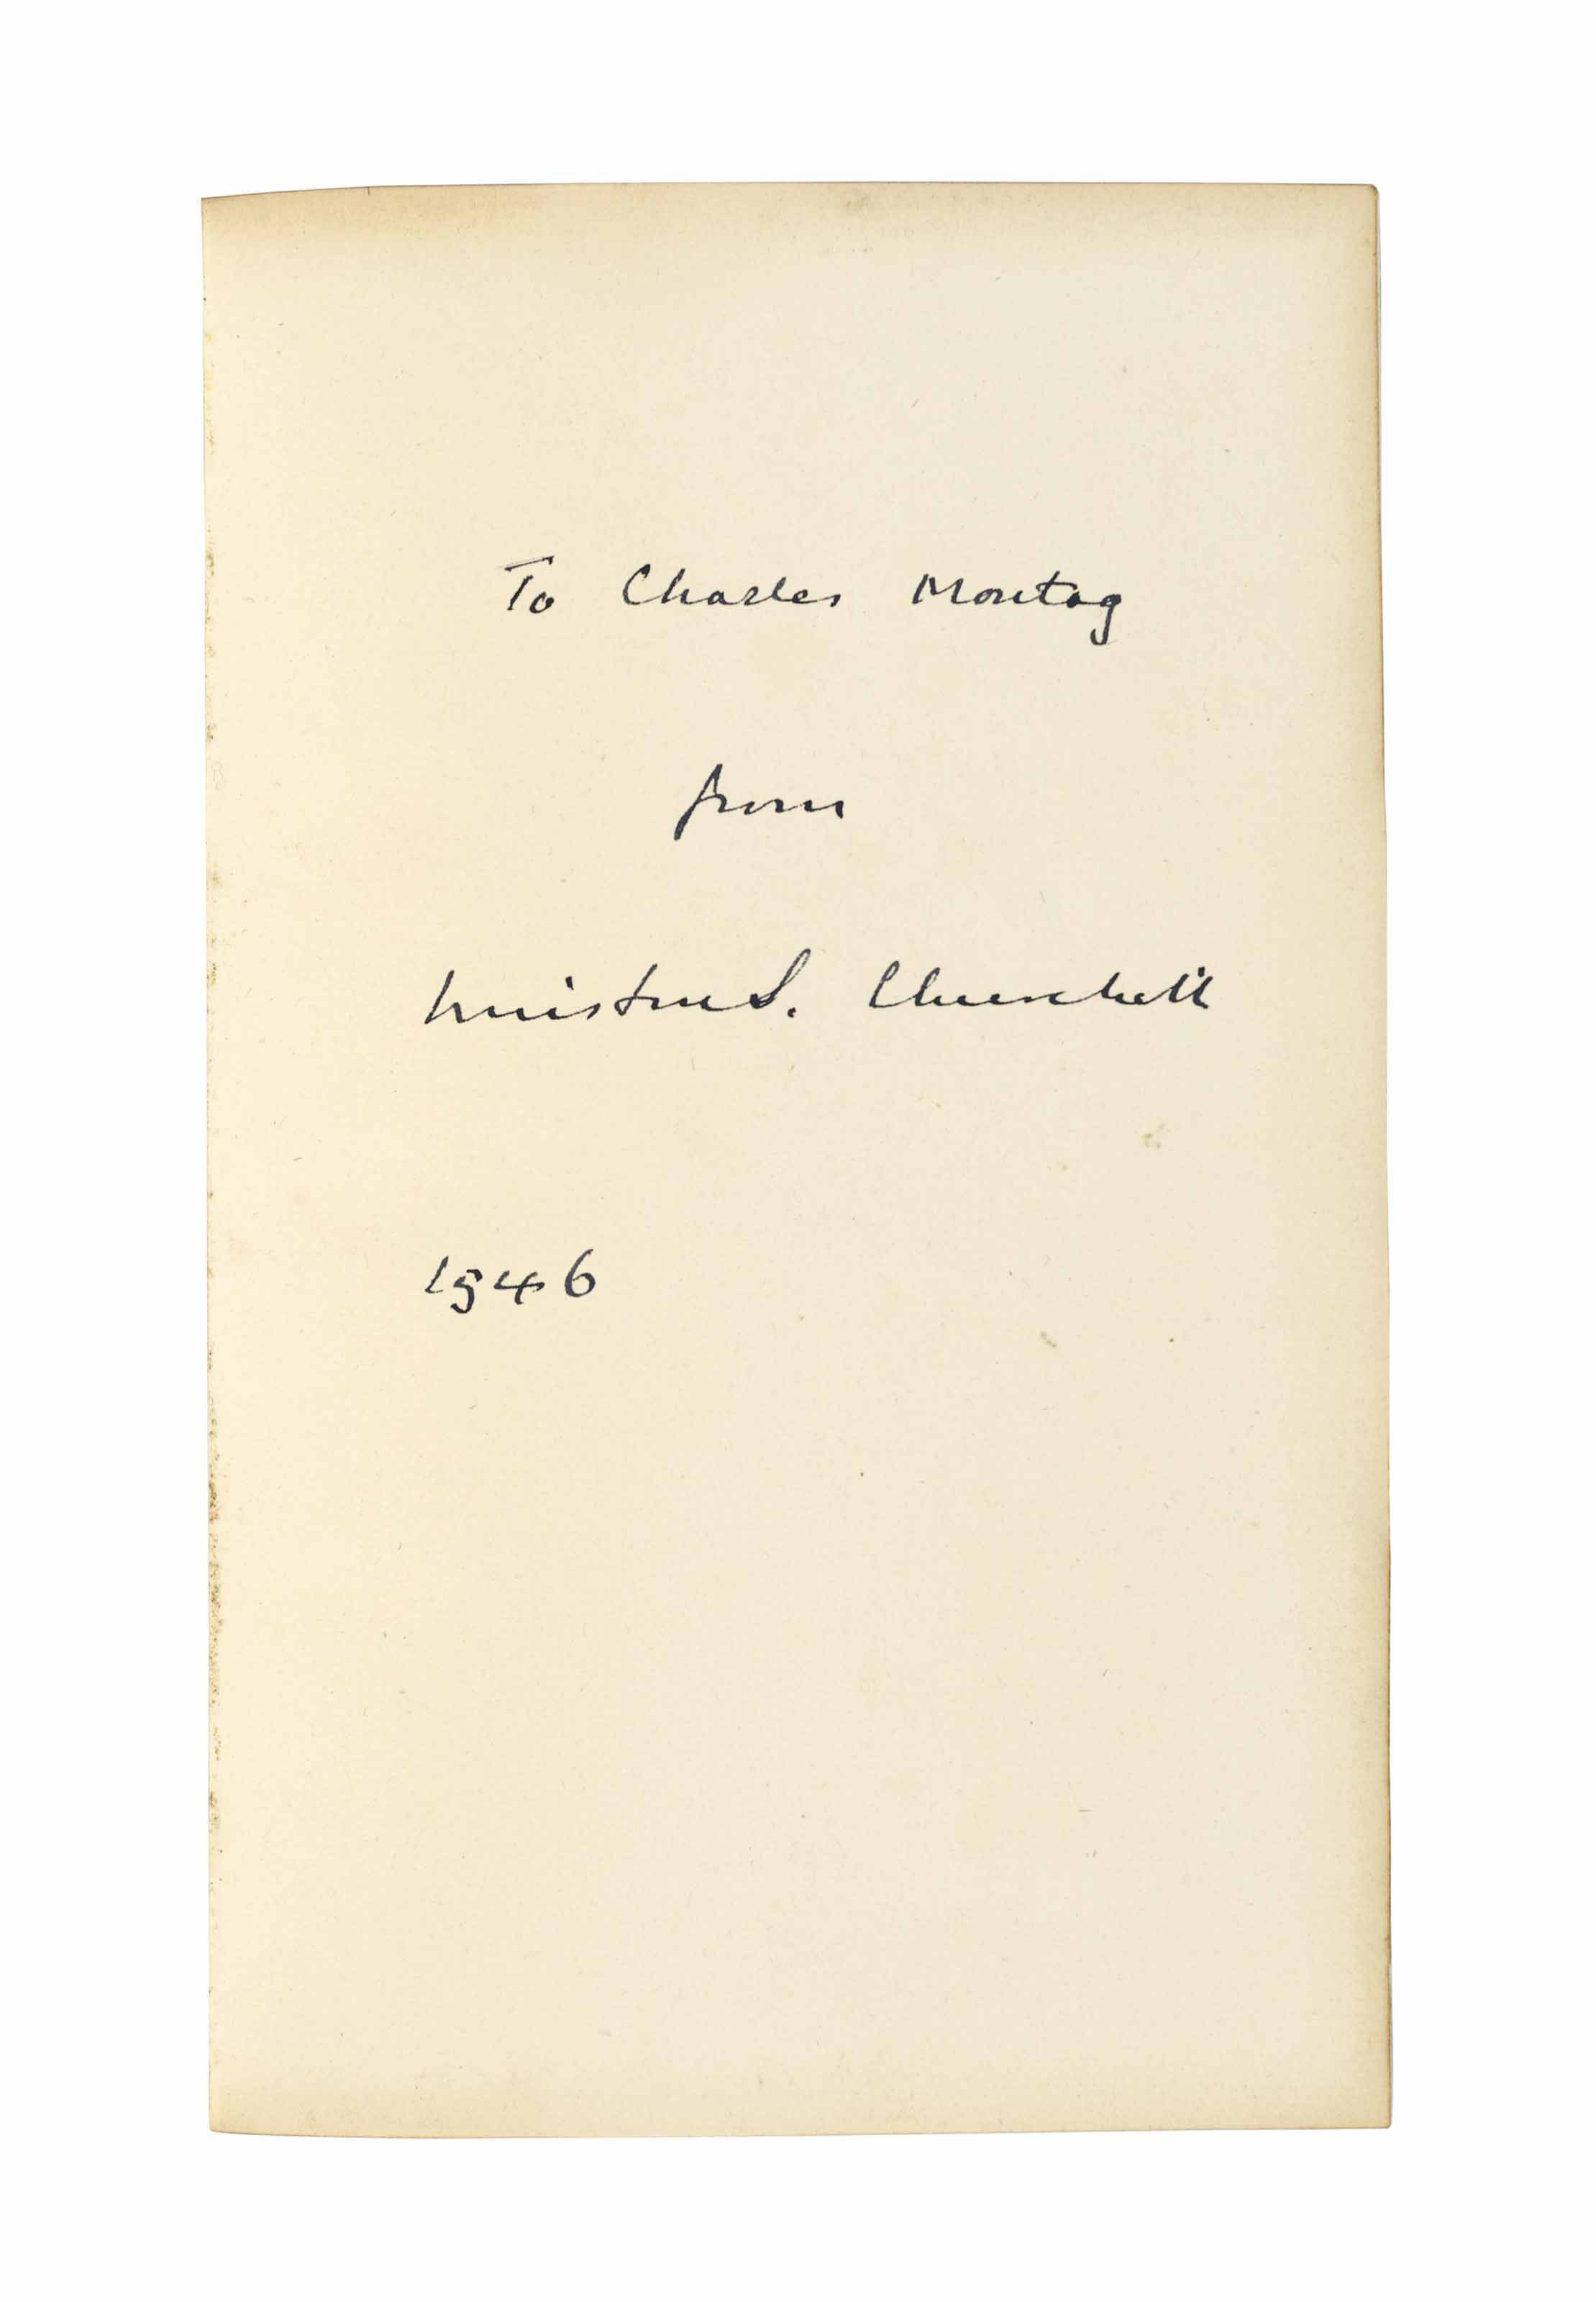 To Charles Montag
from
Winston S. Churchill
1946